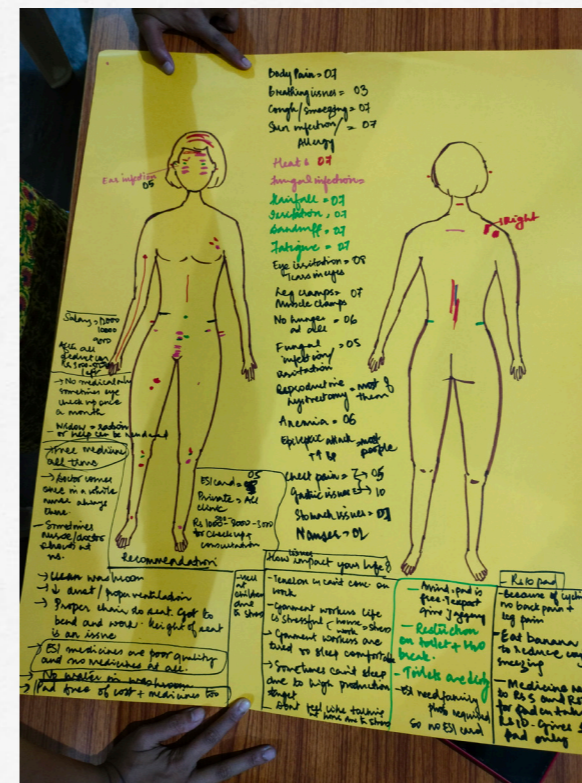 Body Pain = 07
Breathing issues = 03
Cough/sneezing = 07
Skin infection/ = 07
Allergy
Heat = 07
Fungal infections
Hairfall = 07
Irritation = 07
Dandruff = 07
Fatigue = 07
Eye irritation = 08
Tears in eyes
Leg cramps = 07
Muscle cramps
No hunger = 06
at all
Fungal = 05
infection/
irritation
Reproductive = most of
hystrectomy them
Anemia = 06
Epileptic attack = most
people
Chest pain = 05
Gastric issues 10
Stomach issues = 07
Ear infection
05
Right
Salary = 12000
10000
9000
After all
deduction
left
→ No medical
sometimes eye
check up once
a month
- Widow = ration
or help can be
- Free medicine
all time
→ Doctor comes
once in a while
nurse always
there
- Sometimes
nurse/doctor
shouts at
us.
ESI card = 05
Private = All
clinic
for check up &
consultation
Recommendation
→ Clean washroom
→ ↓ dust / proper ventilation
→ Proper chair to seat. Got to
bend and work. Height of seat
is an issue
→ ESI medicines are poor quality
and no medicines at all.
→ No water in washroom
→ Pad free of cost + medicines too
How issues impact your life?
- Yell
at
children
due
to stress
- Tension & can't come on
work
- Garment workers life
is stressful (home = stress
work
- Garment workers are
tired no sleep comfortable
→ Sometimes can't sleep
due to high production
target
- Don't feel like talking
at home due to stress
pad is
free. 1 expert
give jaggery
- Restriction
on toilet + two
break.
- Toilets are dirty
- ESI need family
photo required
so no ESI card
- Rs 10 pad
- Because of
no back pain +
leg pain
- Eat banana
to reduce
sneezing
- Medicine
to Rs 5 and Rs
for pad
Rs 10 - Gives
pad only